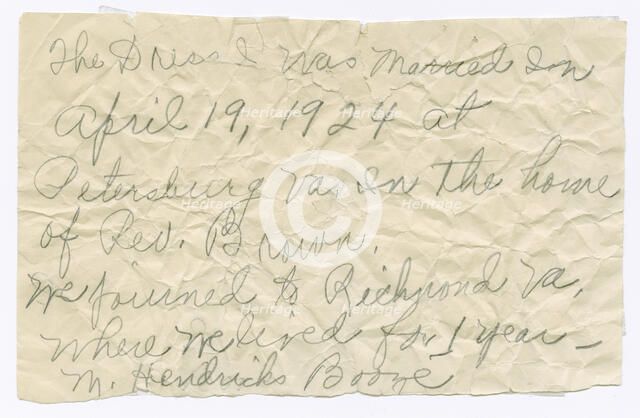 The Dress I Was Married In
April 19, 1924 at
Petersburg Va, In The home
of Rev. Brown.
We journed to Richmond Va.
Where We lived for 1 year –
M. Hendricks Booze